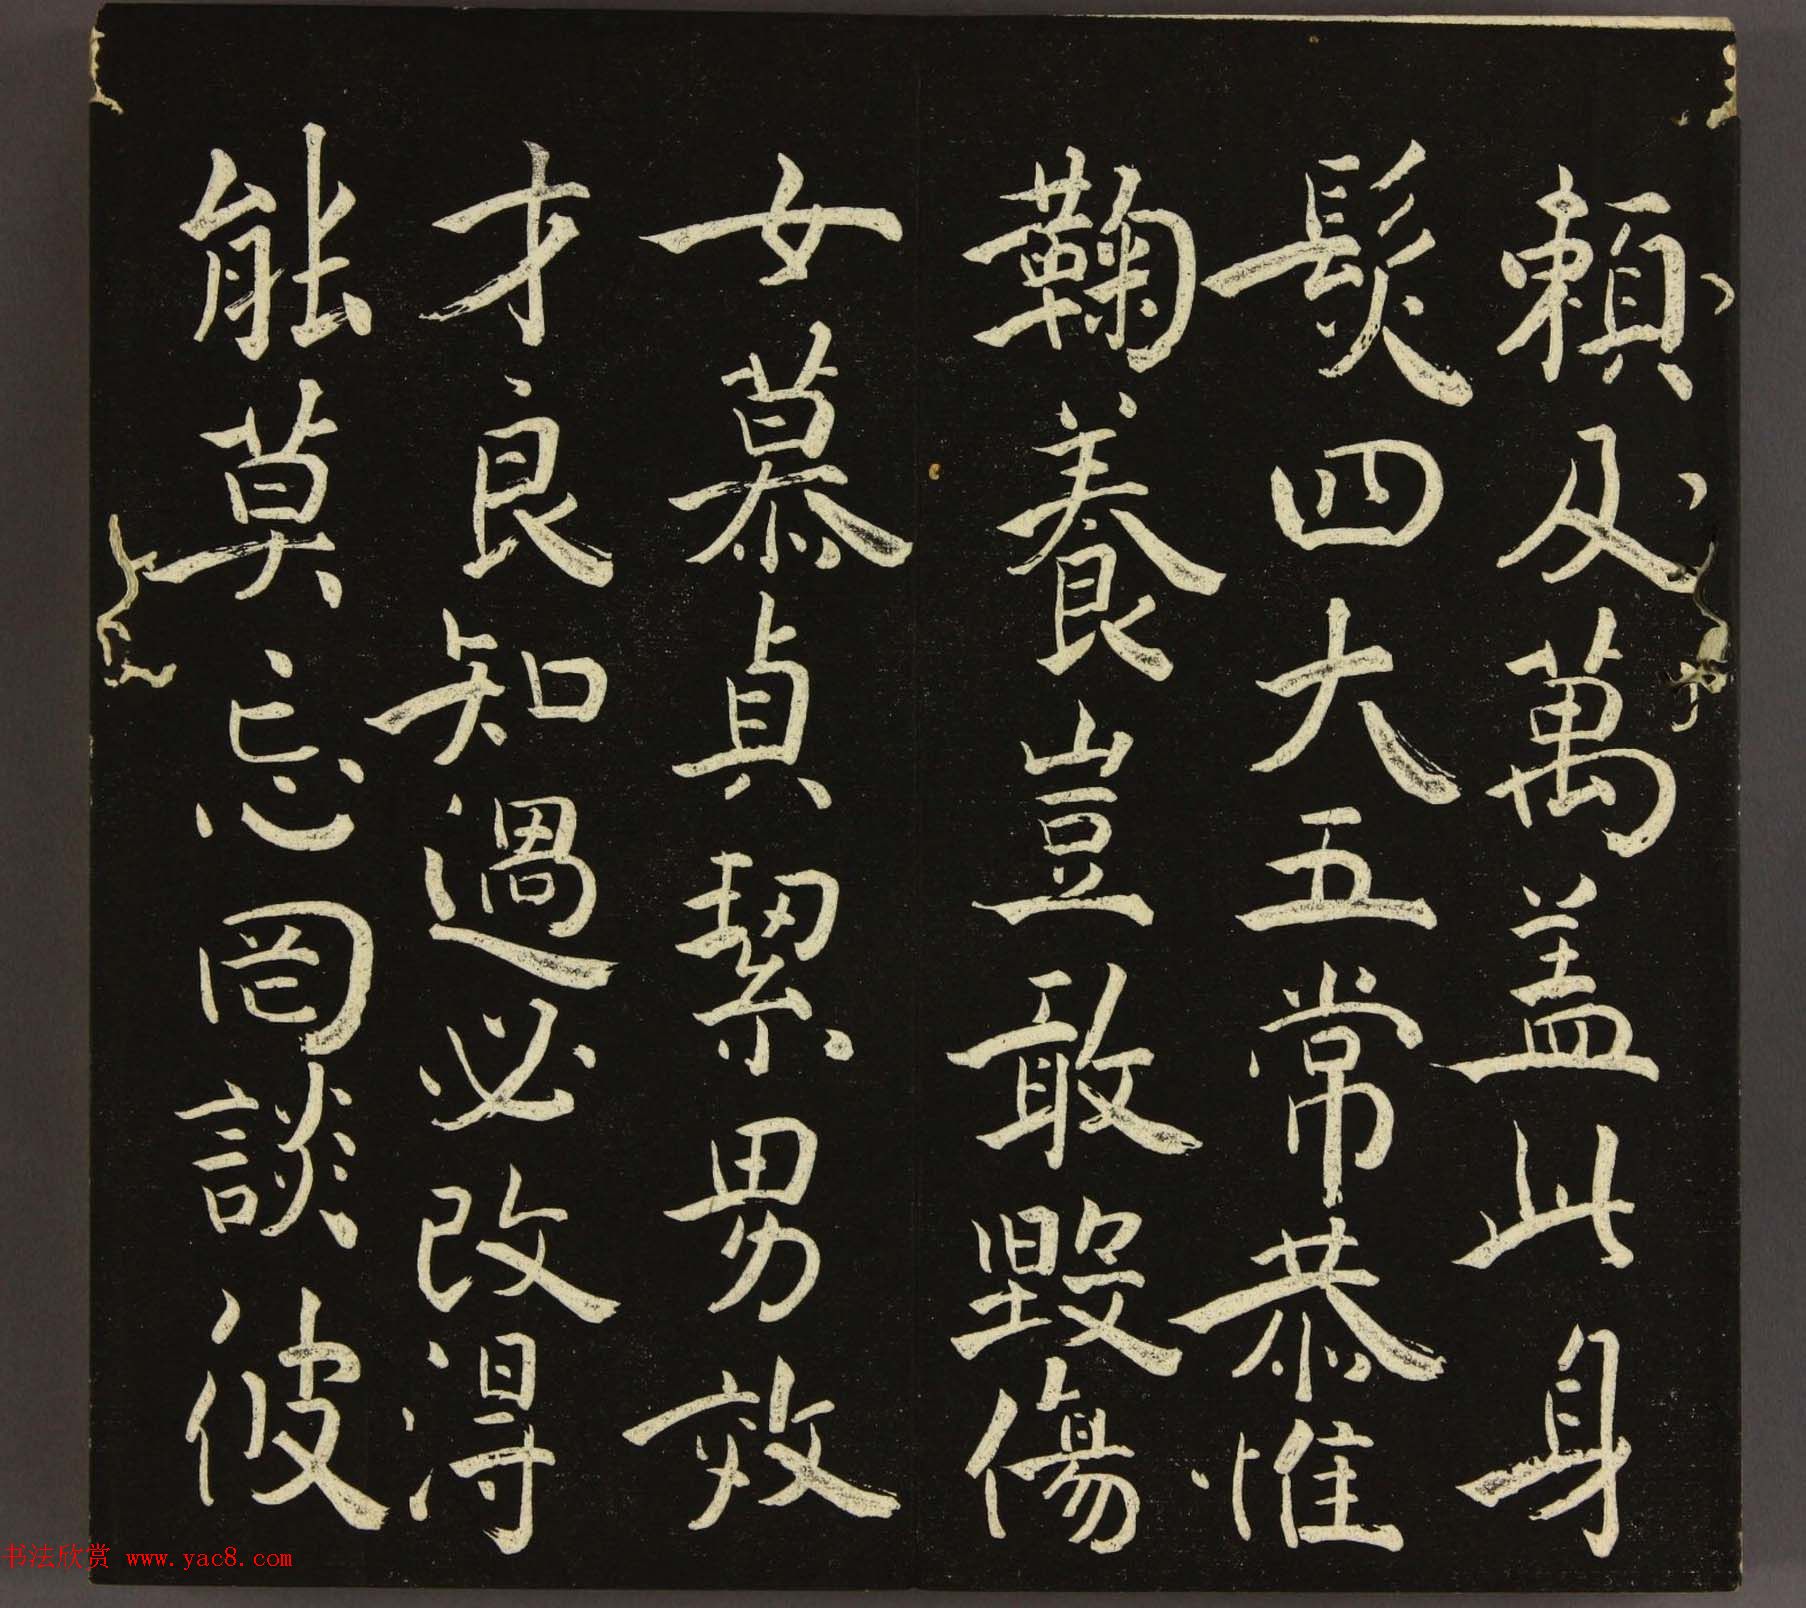 賴及萬盖此身
髮四大五常恭惟
鞠養豈敢毀傷
女慕貞絜男效
才良知過必改得
能莫忘罔談彼
书法欣赏 www.yac8.com